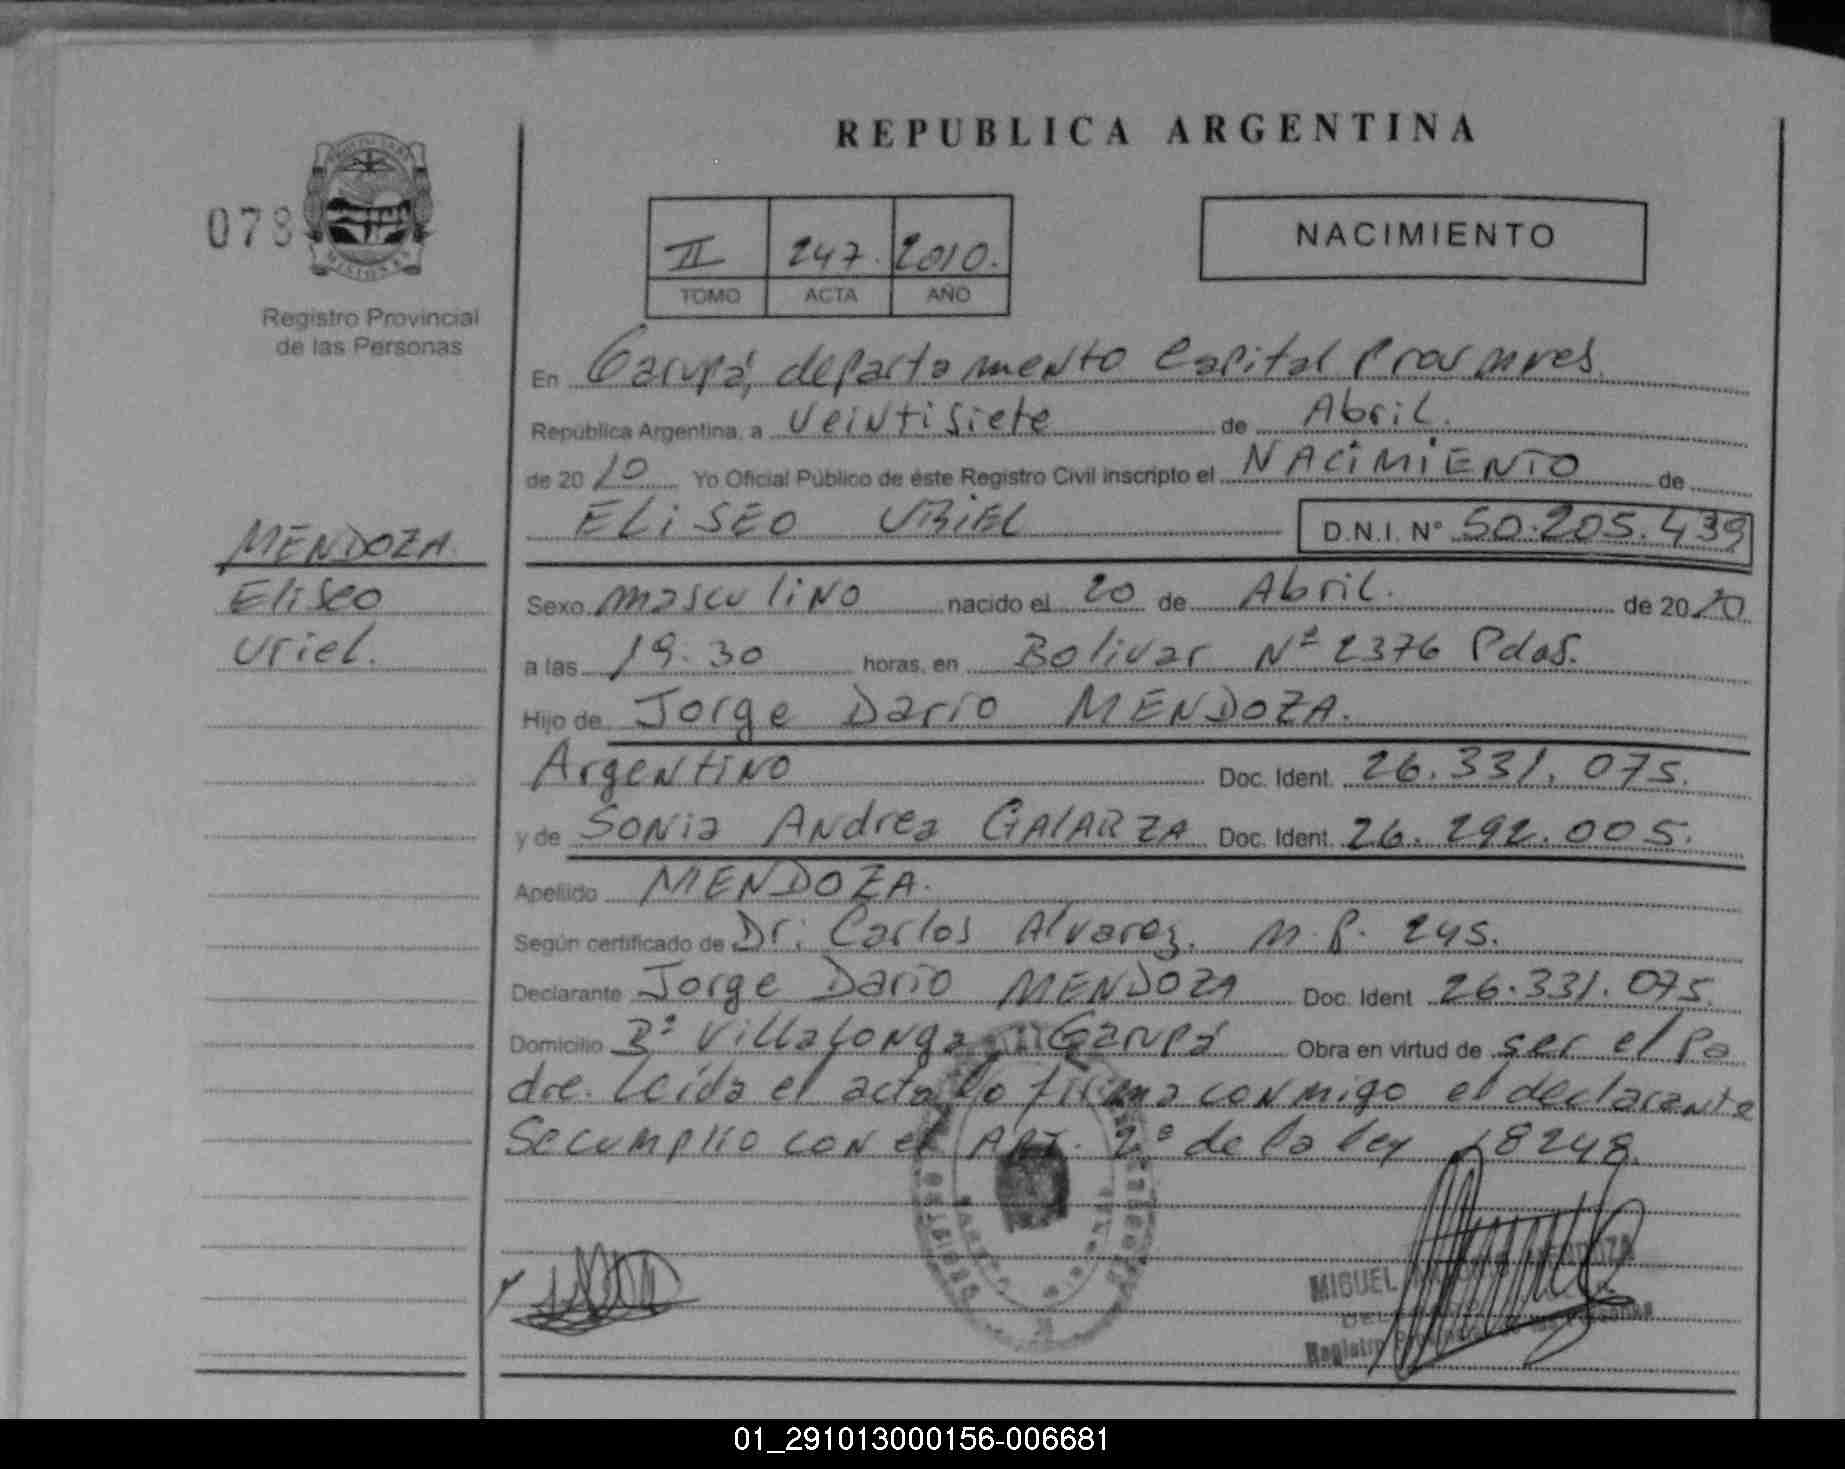 REPUBLICA ARGENTINA
078
MISIONES
Registro Provincial
de las Personas
II 247. 2010.
TOMO ACTA AÑO
NACIMIENTO
En Garupá, departamento Capital
República Argentina, a Veintisiete de Abril.
de 20 10 Yo Oficial Público de éste Registro Civil inscripto el NACIMIENTO de
ELISEO URIEL D.N.I. N° 50.205.439
MENDOZA.
Eliseo
Uriel.
Sexo masculino nacido el 20 de Abril. de 20 10
a las 19.30 horas, en Bolivar Nº 2376 Pdas.
Hijo de Jorge Darío MENDOZA.
Argentino Doc. Ident. 26.331.075.
y de Sonia Andrea GALARZA Doc. Ident. 26.292.005.
Apellido MENDOZA.
Según certificado de Dr. Carlos Alvarez. M.P. 245.
Declarante Jorge Darío MENDOZA Doc. Ident 26.331.075.
Domicilio Bº Villalonga Garupá Obra en virtud de ser el Pa
dre. Leída el acta lo firma conmigo el declarante
Se cumplio con el Art. 2º de la ley 18248.
MIGUEL MENDOZA
Registro
01_291013000156-006681